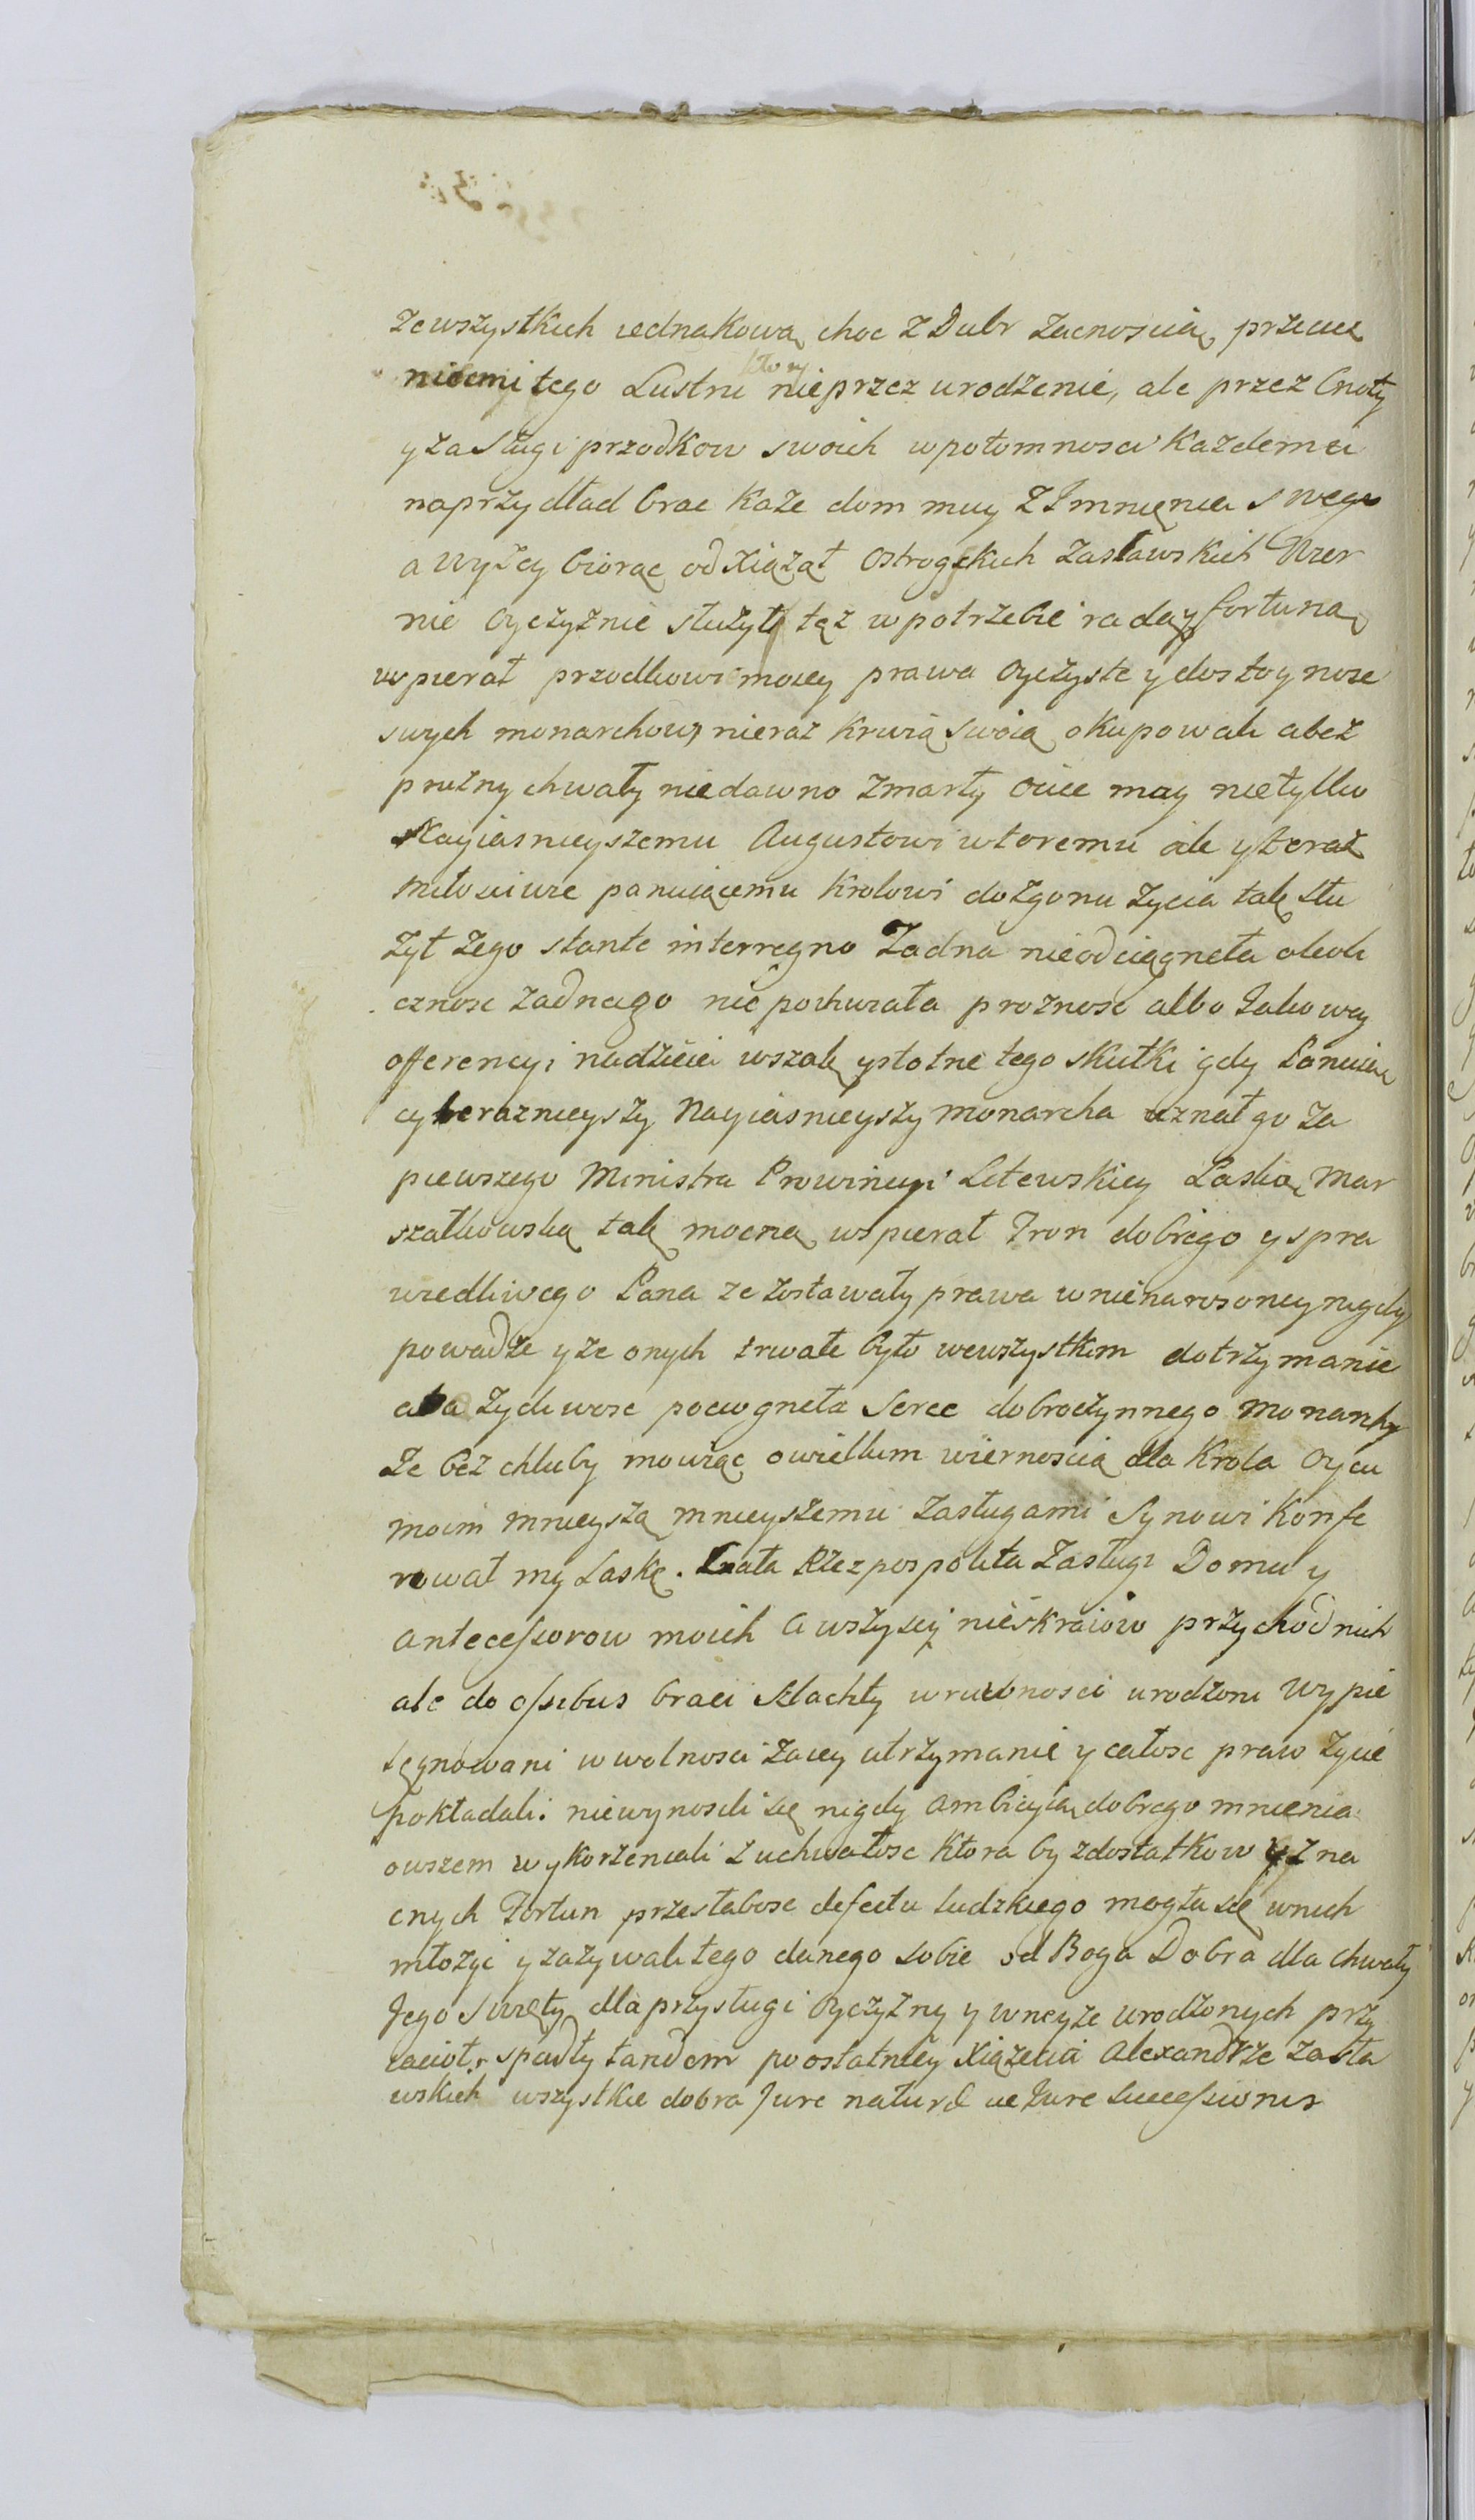 ze wszystkich iednakową choc z Dubr zacnoscią, przeciez
nicemi tego Lustru ktory nieprzez urodzenie, ale przez Cnoty
y zasługi przodkow swoich w potomnosci Kazdemu
naprzydład brac Kaze dom muy z Imnięnia swego
a wyzey biorąc od Xiąząt Ostrogskich Zasławskich Wier
nie Oyczyznie słuzył tęz w potrzebie radą y fortuną
wspierał przodkowie moiey prawa Oyczyste y dostoynosc
swych monarchow, nieraz Krwią swoią okupowali a bez
prozny chwały niedawno zmarły Ociec moy nie tylko
Nayiasnieyszemu Augustowi wtoremu ale y teraz
miłosciwie panuiącemu Krolowi do zgonu zycia tak słu
zył zego stante interregno Zadna nieodciągneła okoli
cznosc zadnego nie pochwiała proznosc albo Iakowey
offerencyi nadzieiei wszak ystotne tego skutki gdy Panuią
cy teraznieyszy Nayiasnieyszy monarcha uznał go za
piewszego Ministra Prowincyi Litewskiey Laską Mar
szałkowską tak mocną wspierał Tron dobrego y spra
wiedliwego Pana ze zostawały prawa w nienarosoney nigdy
powadze y ze onych trwałe było wewszystkim dotrzymanie
a ta zycliwosc pociogneła Serce dobroczynnego Monarchy
Ze bez chluby mowiąc o wielkim wiernoscią dla Krola Oycu
moim mnieyszą mnieyszemu zasługami Synowi Konfe
rował my Laskę. Znała Rzezpospolita Zasługi Domu y
Antecessorow moich a wszyscy nieskraiow przychodnich
ale do ossibus braci szlachty w rownosci urodzoni Wypie
lęgnowani w wolnosci zaiey utrzymanie y całosc praw zycie
pokładali. niewynosili się nigdy ambicyią dobrego mnienia
owszem wykorzeniali zuchwałosc Ktora by z dostatkow y zna
cnych Fortun przesłabosc defectu ludzkiego mogła się wnich
młozyc y zazywali tego danego sobie od Boga Dobra dla chwały
Jego Swięty dla przysługi Oyczyzny y wneyze urodzonych przy
iacioł. spadły tandem po ostatniey Xiązecia Alexandrze Zasła
wskich wszystkie dobra Jure naturæ ae Jure Successionis